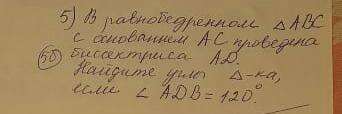 5) В равнобедренном △ABC
с основанием AC проведена
(5б) биссектриса AD.
Найдите углы △-ка,
если ∠ADB = 120°.